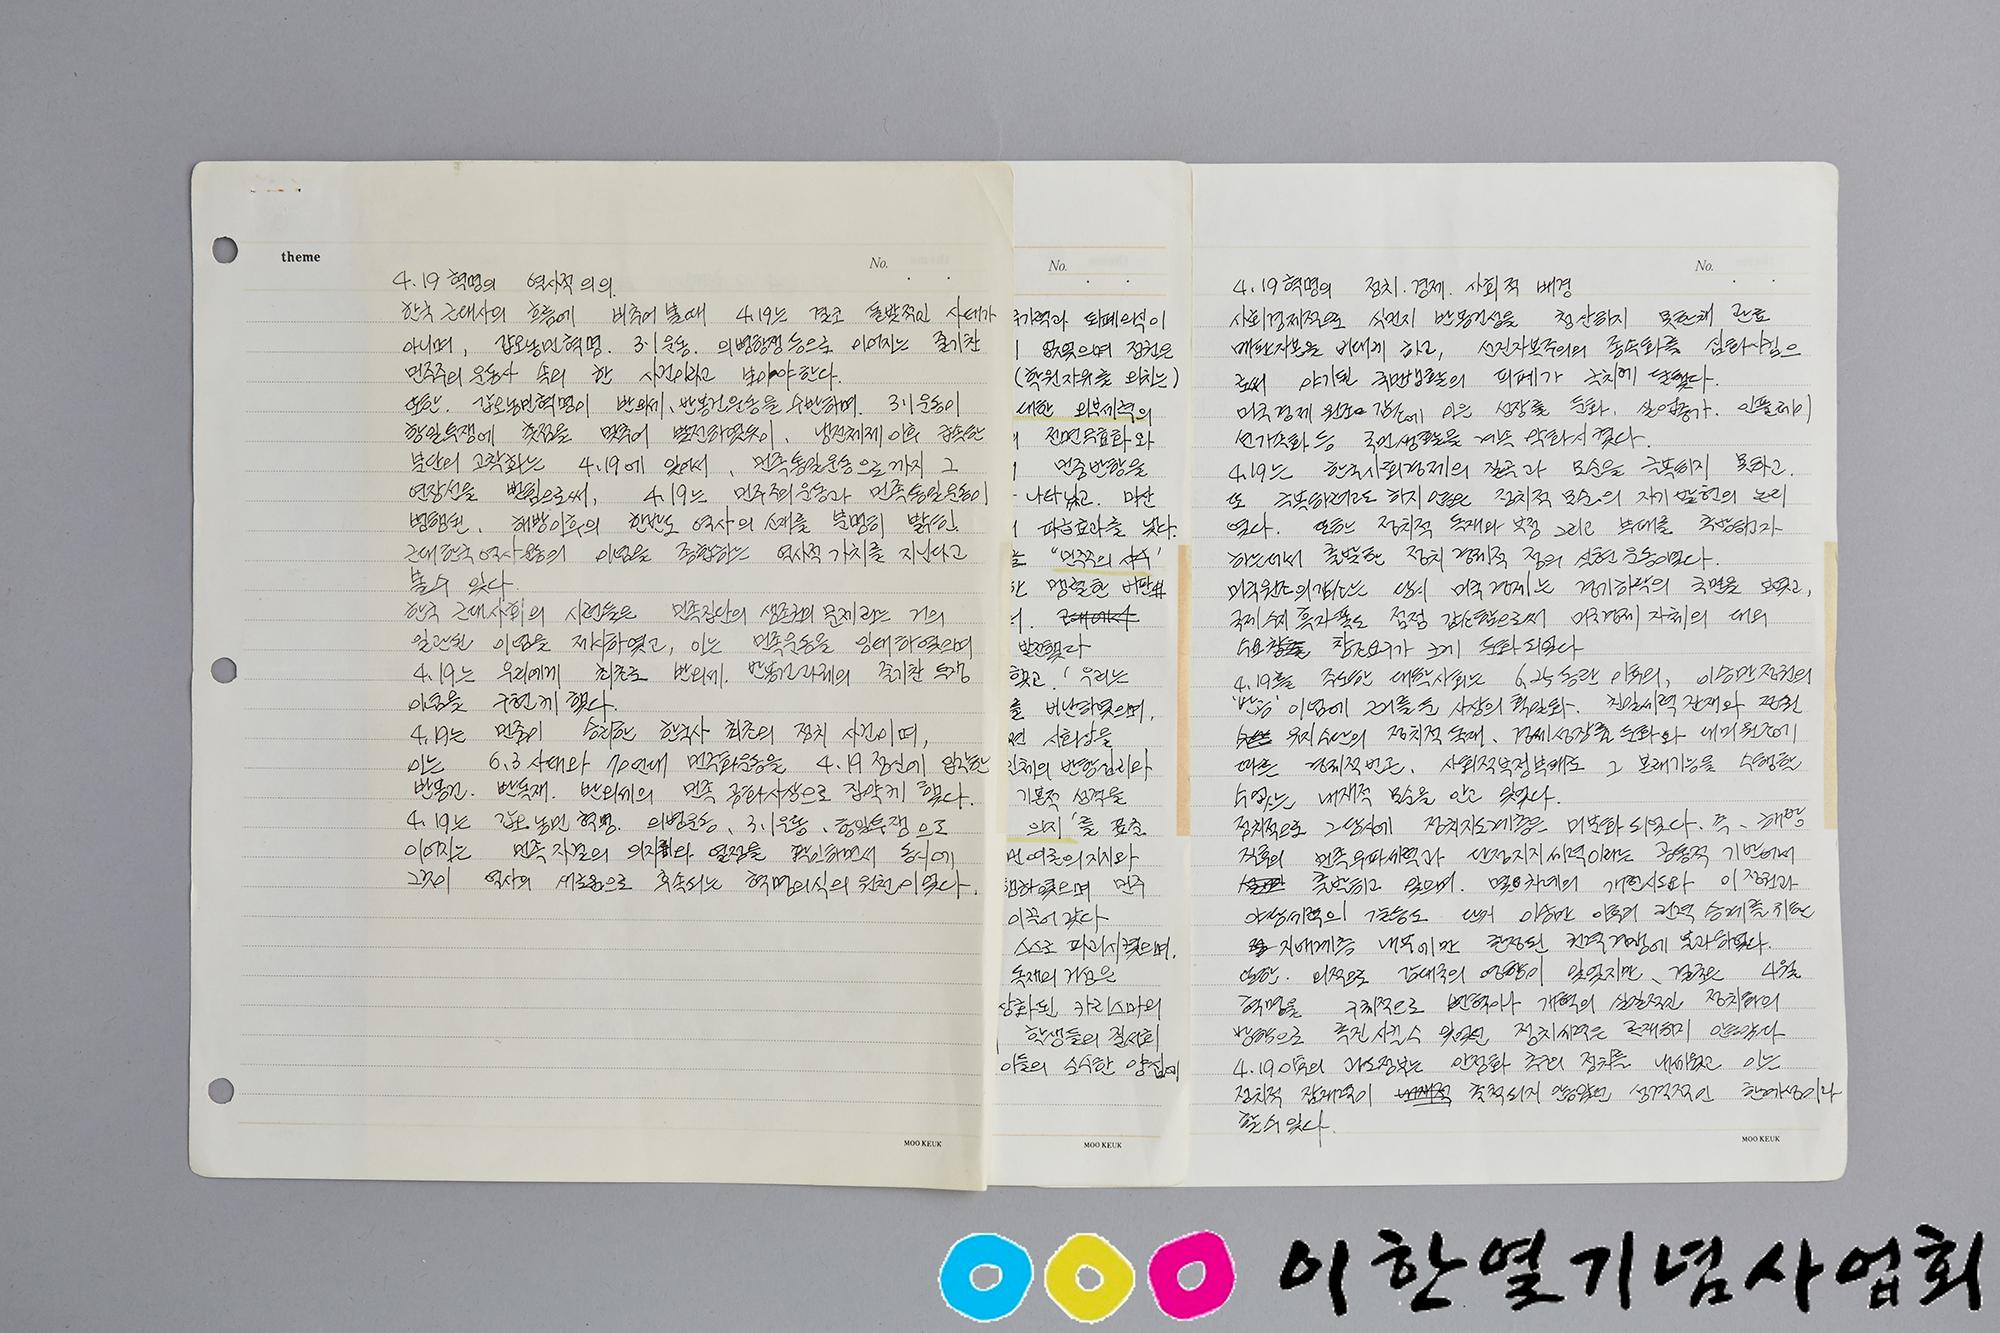 theme
No.
4.19 혁명의 역사적 의의.
한국 근대사의 흐름에 비추어 볼때 4.19는 결코 돌발적인 사태가
아니며, 갑오농민혁명. 3.1운동. 의병항쟁 등으로 이어지는 줄기찬
민주주의 운동사 속의 한 사건이라고 보아야 한다.
또한. 갑오농민혁명이 반외세, 반봉건운동을 수반하며. 3.1운동이
항일투쟁에 촛점을 맞추어 발전하였듯이, 냉전체제 이후 급속한
분단의 고착화는 4.19에 있어서, 민족통일운동으로까지 그
연장선을 뻗침으로써, 4.19는 민주주의운동과 민족통일운동이
병행된. 해방이후의 한반도 역사의 선재를 분명히 밝힌.
근대한국역사운동의 이념을 종합하는 역사적 가치를 지닌다고
볼수 있다
한국 근대사회의 시련들은 민족집단의 생존권의 문제라는 거의
일관된 이념을 제시하였고, 이는 민족운동을 잉태하였으며
4.19는 우리에게 최초로 반외세. 반봉건과제의 줄기찬 투쟁
이념을 구현케 했다.
4.19는 민중이 승리한 한국사 최초의 정치 사건이며,
이는 6.3 사태와 70연대 민주화운동을 4.19 정신에 입각한
반봉건. 반독재. 반외세의 민족 공화사상으로 집약케 했다.
4.19는 갑오농민 혁명. 의병운동, 3.1운동, 항일투쟁으로
이어지는 민족자결의 의지와 열정을 확인하면서 동시에
그것이 역사의 새로움으로 회속되는 혁명의식의 원천이였다.
MOO KEUK
No.
퇴폐의식이
없었으며 정천은
(학원자유를 외치는)
대한 외부세력의
전면무효화와
민중반항을
나타났고. 마산
파급효과를 낳았다.
"민주주의 사수'
한 맹렬한 비판
발전했다
했고. '우리는
를 비난하였으며,
사회상을
반항심리와
기본적 성격을
의지'를 표출
여론의 지지와
하였으며 민주
이끌어 갔다
스스로 파괴시켰으며.
독재의 거점은
상화된 카리스마의
학생들의 질서회
이들의 순수한 양심에
MOO KEUK
No.
4.19 혁명의 정치. 경제. 사회적 배경
사회경제적으로 식민지 반봉건성을 청산하지 못한채 관료
매판자본을 비대케 하고, 선진자본주의의 종속화를 심화시킴으
로써 야기된 국민생활의 피폐가 극치에 달했다.
미국경제 원조 감소에 의한 성장률 둔화. 실업증가. 인플레이
션가속화 등 국민생활을 계속 악화시켰다.
4.19는 한국사회경제의 질곡과 모순을 극복하지 못하고.
또 극복하려고도 하지 않은 정치적 모순의 자기발현의 논리
였다. 또한 정치적 독재와 부정 그리고 부패를 추방하고자
하는데서 출발한 정치 경제적 정의 실현 운동이였다.
미국원조의 감소는 당시 미국경제는 경기하락의 국면을 보였고,
국제수지 흑자폭도 점점 감소함으로써 미국경제 자체의 대외
수요 창출요구가 크게 둔화 되었다
4.19를 주도한 대학사회는 6.25동란 이후의, 이승만정권의
'반공' 이념에 근거를 둔 사상의 획일화. 친일세력잔재와 정권
유지수단의 정치적독재, 경제성장률 둔화와 대미원조에
따른 경제적빈곤, 사회적부정부패도 그 본래기능을 수행할
수 없는 내재적 모순을 안고 있었다.
정치적으로 그당시에 정치지도계층은 미분화되었다. 즉, 해방
직후의 민족우파세력과 단정지지세력이라는 공통적 기반에서
출발하고 있으며. 몇차례의 개헌시도와 이정권과
야당세력의 갈등도 단지 이승만 이후의 권력 승계를 위한
지배계층 내부에만 한정된 권력경쟁에 불과하였다.
또한. 외적으로 강대국의 영향이 있었지만, 결국은 4월
혁명을 구체적으로 변혁이나 개혁의 실질적인 정치화의
방향으로 촉진시킬수 있었던 정치세력은 존재하지 않았다
4.19이후의 과도정부는 안정화 추구의 정치를 내세웠고 이는
정치적 잠재력이 축적되지 않았던 성격적인 한계성이라
할수 있다.
MOO KEUK
이한열기념사업회